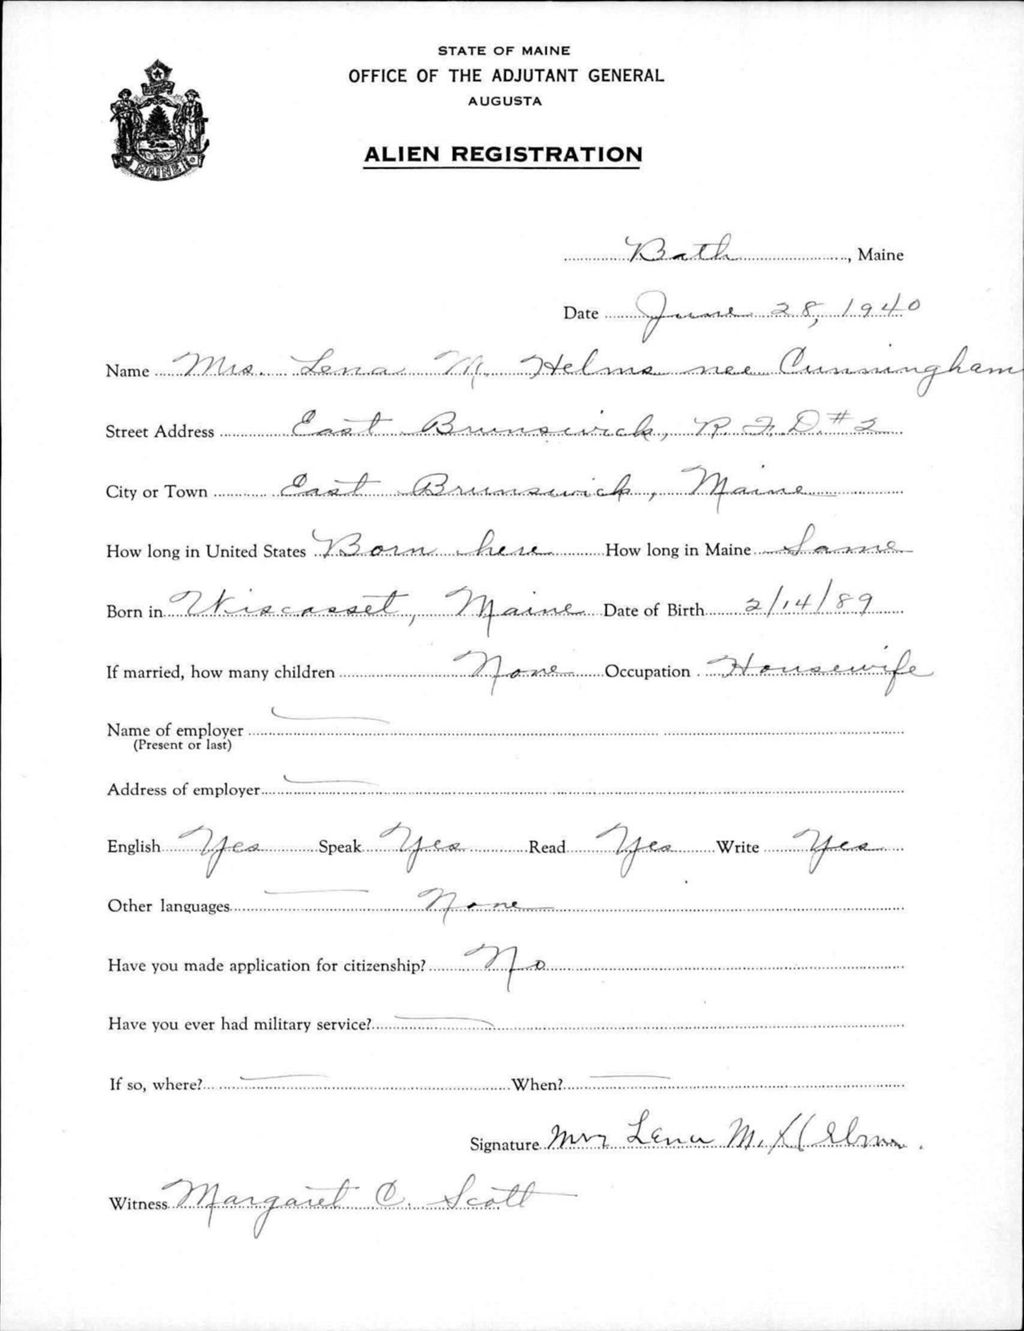 STATE OF MAINE
OFFICE OF THE ADJUTANT GENERAL
AUGUSTA
ALIEN REGISTRATION
MAINE
Bath, Maine
Date June 28, 1940
Name Mrs. Lena M. Helms nee Cunningham
Street Address East Brunswick, R.F.D. #2
City or Town East Brunswick, Maine
How long in United States Born here How long in Maine Same
Born in Wiscasset, Maine Date of Birth 2/14/89
If married, how many children None Occupation Housewife
Name of employer
(Present or last)
Address of employer
English Yes Speak Yes Read Yes Write Yes
Other languages None
Have you made application for citizenship? No
Have you ever had military service?
If so, where? When?
Signature Mrs Lena M. Helms.
Witness Margaret C. Scott